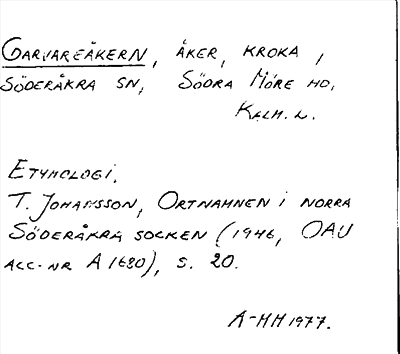 GARVAREÅKERN, ÅKER, KROKA,
SÖDERÅKRA SN, SÖDRA MÖRE HD,
KALM. L.
ETYMOLOGI.
T. JOHANSSON, ORTNAMNEN I NORRA
SÖDERÅKRA SOCKEN (1946, OAU
ACC-NR A 1680), S. 20.
A-MH 1977.